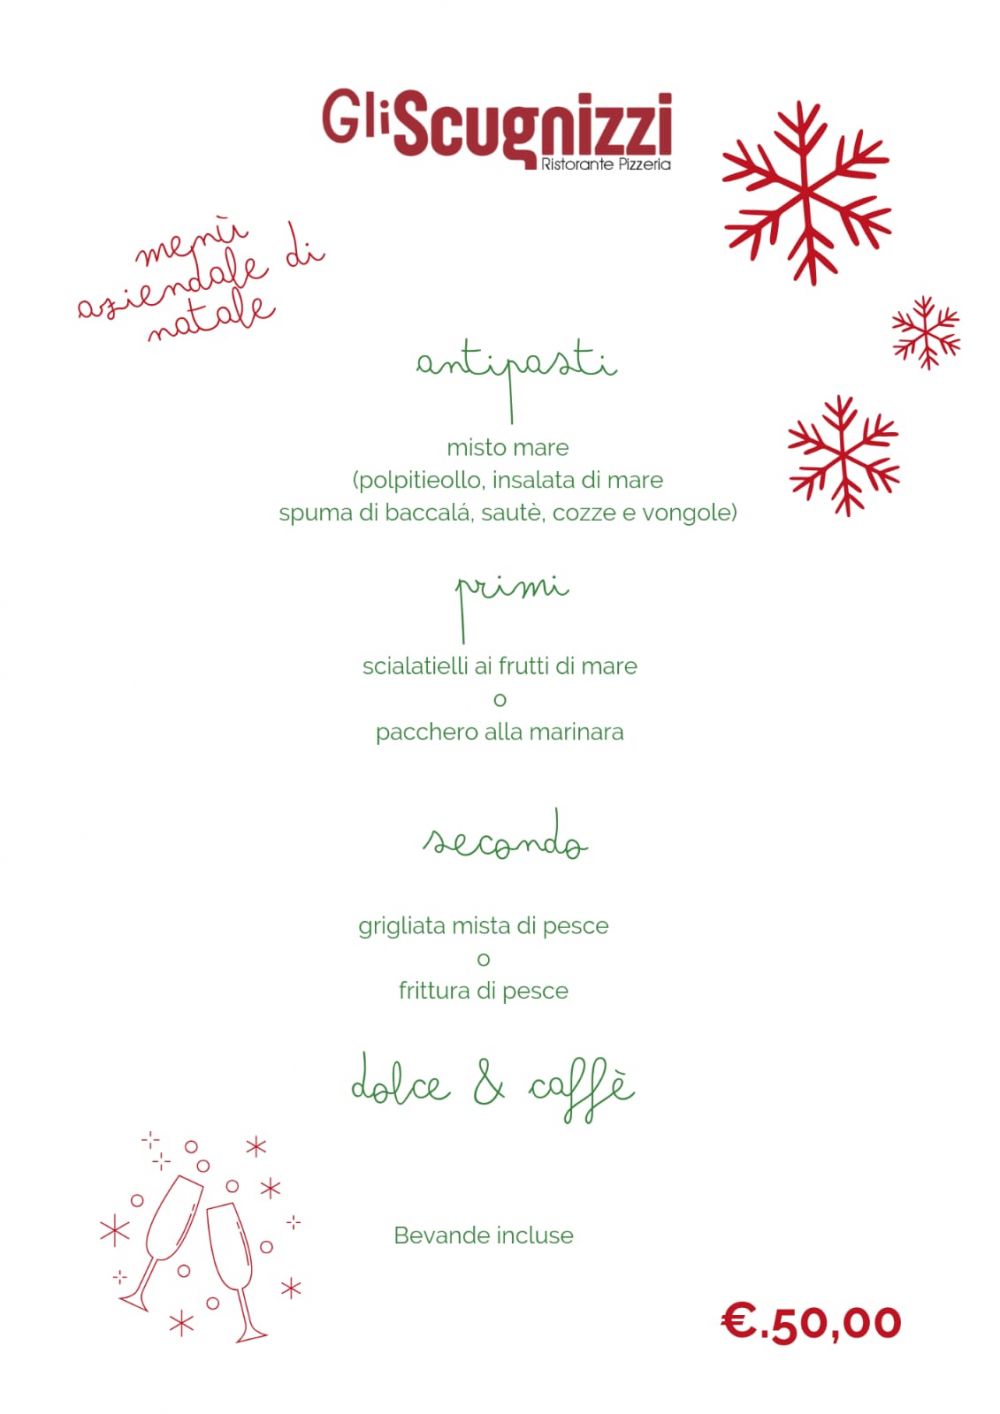 GliScugnizzi
Ristorante Pizzeria
menù
aziendale di
natale
antipasti
misto mare
(polpitieollo, insalata di mare
spuma di baccalá, sautè, cozze e vongole)
primi
scialatielli ai frutti di mare
o
pacchero alla marinara
secondo
grigliata mista di pesce
o
frittura di pesce
dolce & caffè
Bevande incluse
€.50,00